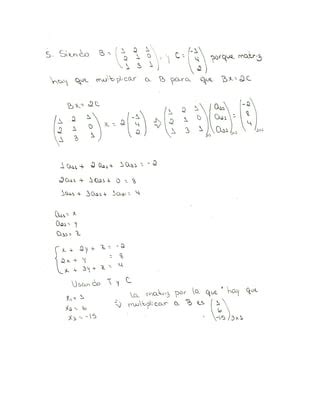 5. Siendo B = (1 2 1 / 2 1 0 / 1 3 1), y C = (-1 / 4 / 2) porque matriz
hay que multiplicar a B para que BX = 2C
BX = 2C
(1 2 1 / 2 1 0 / 1 3 1) x = 2 (-1 / 4 / 2) ⇒ (1 2 1 / 2 1 0 / 1 3 1) (a11 / a21 / a31) = (-2 / 8 / 4)
1a11 + 2a21 + 1a31 = -2
2a11 + 1a21 + 0 = 8
1a11 + 3a21 + 1a31 = 4
a11 = x
a21 = y
a31 = z
{ x + 2y + z = -2
2x + y = 8
x + 3y + z = 4
Usando T y C
x1 = 1
x2 = 6
x3 = -15
la matriz por la que hay que
⇒ multiplicar a B es (1 / 6 / -15) 3x1